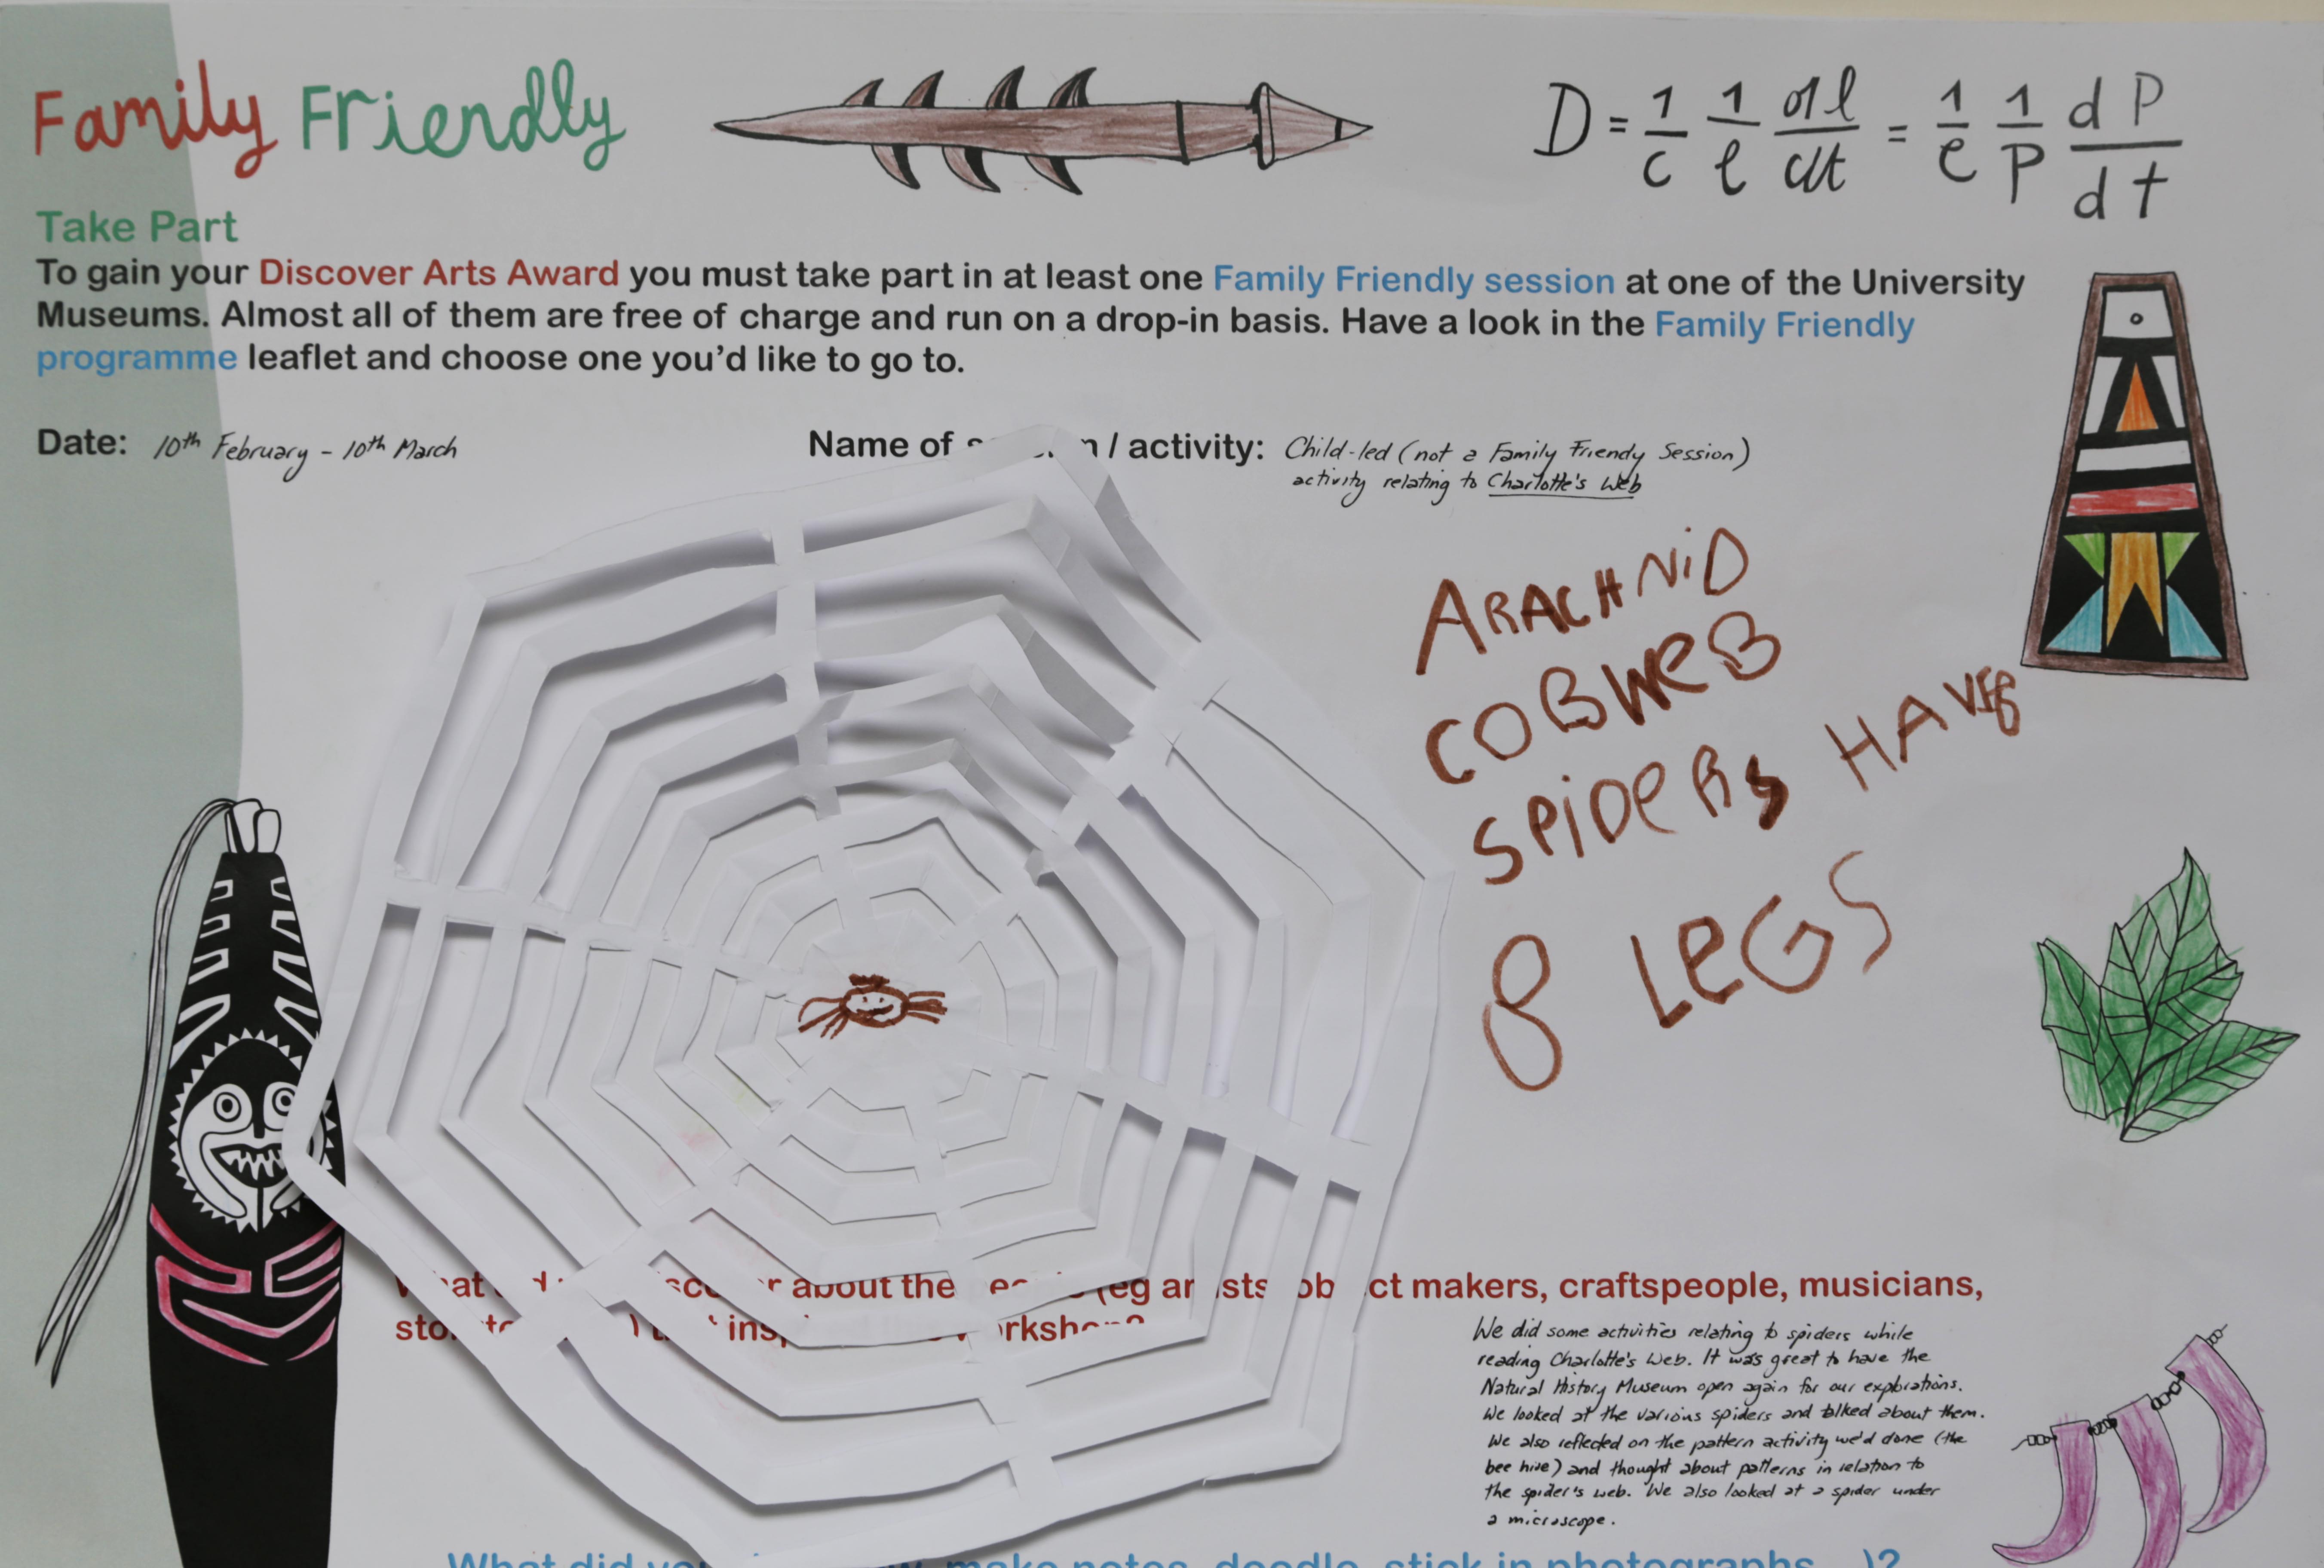 Family Friendly
D = 1/c 1/l dl/dt = 1/c 1/P dP/dt
Take Part
To gain your Discover Arts Award you must take part in at least one Family Friendly session at one of the University
Museums. Almost all of them are free of charge and run on a drop-in basis. Have a look in the Family Friendly
programme leaflet and choose one you'd like to go to.
Date: 10th February - 10th March
Name of / activity: Child-led (not a Family Friendy Session)
activity relating to Charlotte's Web
ARACHNiD
COBWeB
SPiDeRs HAVE
8 LeGS
about the (eg ct makers, craftspeople, musicians,
We did some activities relating to spiders while
reading Charlotte's Web. It was great to have the
Natural History Museum open again for our explorations.
We looked at the various spiders and talked about them.
We also reflected on the pattern activity we'd done (the
bee hive) and thought about patterns in relation to
the spider's web. We also looked at a spider under
a microscope.
What did make notes, doodle, stick in photographs )?